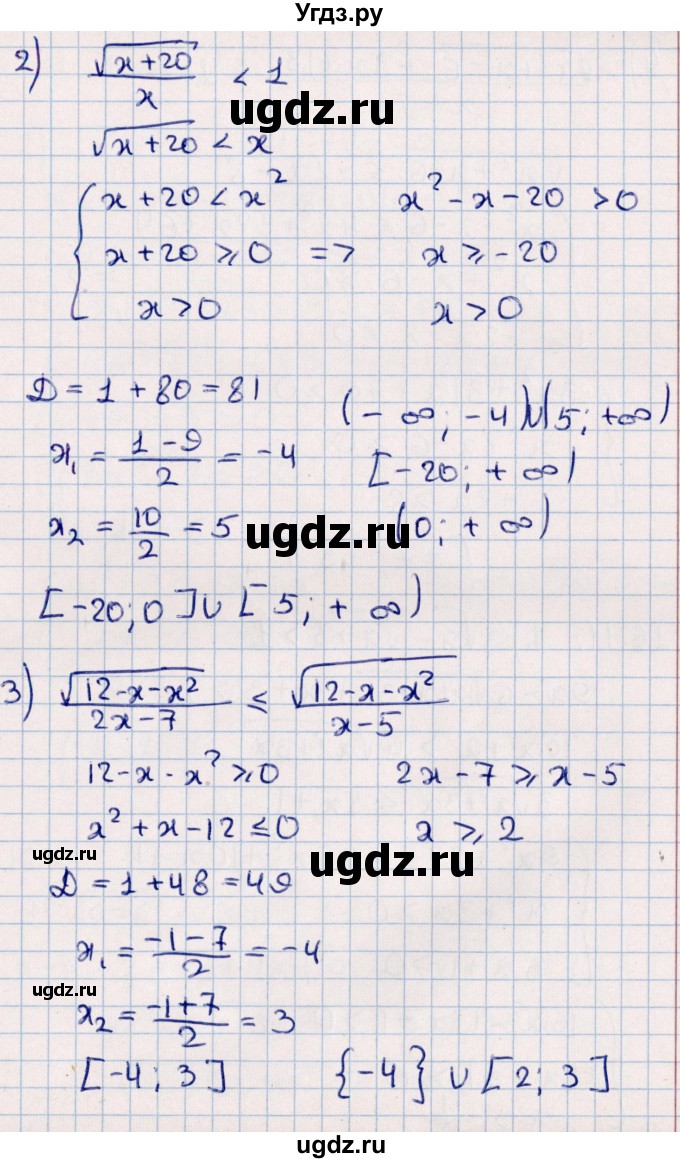 Угдз.ру
2) √(x+20)/x < 1
ugdz.ru
√(x+20) < x
{ x + 20 < x²    x² - x - 20 > 0
x + 20 ⩾ 0 => x ⩾ -20
x > 0    x > 0
Д = 1 + 80 = 81    (-∞; -4)∪(5; +∞)
x₁ = (1-9)/2 = -4    [-20; +∞)
ugdz.ru
x₂ = 10/2 = 5    (0; +∞)
[-20; 0]∪[5; +∞)
3) √(12-x-x²)/(2x-7) ≤ √(12-x-x²)/(x-5)
12-x-x² ⩾ 0    2x-7 ⩾ x-5
x² + x - 12 ≤ 0    x ⩾ 2
ugdz.ru
ugdz.ru
Д = 1 + 48 = 49
x₁ = (-1-7)/2 = -4
ugdz.ru
x₂ = (-1+7)/2 = 3
[-4; 3]    {-4} ∪ [2; 3]
ugdz.ru